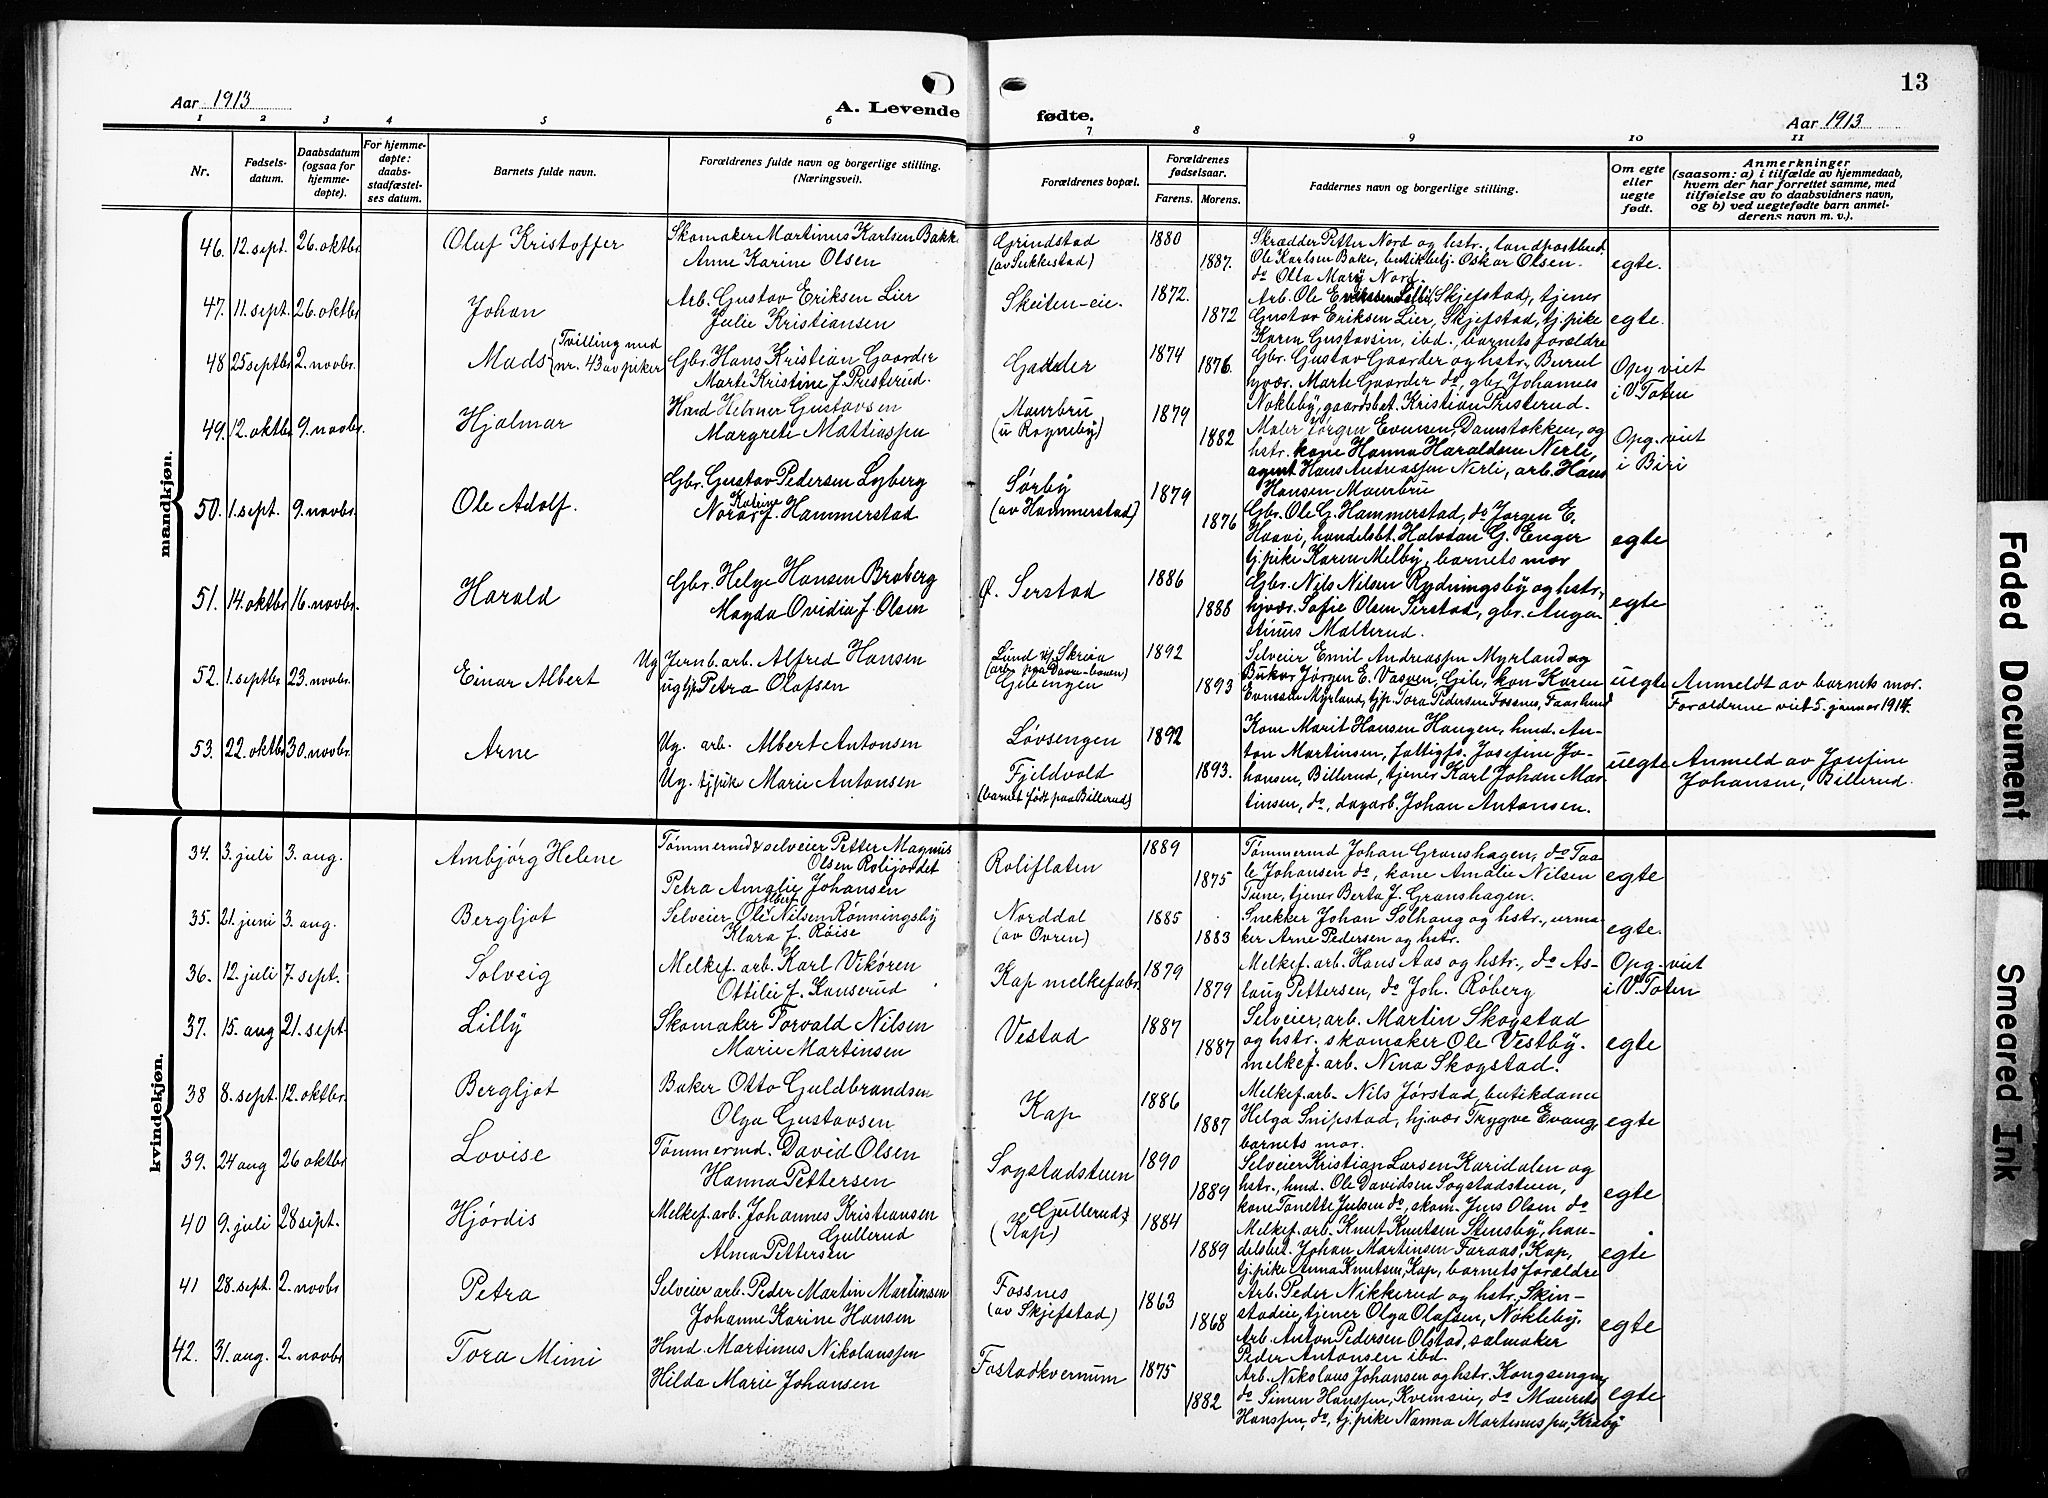 13
Aar 1913
A. Levende
fødte.
Aar 1913
1 2 3 4 5 6 7 8 9 10 11
Nr.
Fødsels-
datum.
Daabsdatum
(ogsaa for
hjemme-
døpte).
For hjemme-
døpte:
daabs-
stadfæstel-
ses datum.
Barnets fulde navn.
Forældrenes fulde navn og borgerlige stilling.
(Næringsvei).
Forældrenes bopæl.
Forældrenes
fødselsaar.
Farens. Morens.
Faddernes navn og borgerlige stilling.
Om egte
eller
uegte
født.
Anmerkninger
(saasom: a) i tilfælde av hjemmedaab,
hvem der har forrettet samme, med
tilføielse av to daabsvidners navn,
og b) ved uegtefødte barn anmel-
derens navn m. v.).
mandkjøn.
46. 12. sept. 26. oktbr. Oluf Kristoffer
Skomaker Martinus Karlsen Bakk
Anne Karine Olsen
Grindstad
(av Sukkestad)
1880
1887.
Skrædder Petter Nord og hstr., landpostbud.
Ole Karlsen Bake, butikbetj. Oskar Olsen.
do Otta Mary Nord.
egte.
47. 11. sept. 26. oktbr. Johan
Arb. Gustav Eriksen Lier
Julie Kristiansen
Skeiten-eie.
1872.
1872
Arb. Ole (Skjefstad), tjener
Gustav Eriksen Lier, Skjefstad, tj.pike
Karen Gustavsen, ibd., barnets forældre
egte.
48 25 septbr 2. novbr. Mads (Tvilling med
nr. 43 av piker
Gbr. Hans Kristian Gaarder
Marte Kristine f. Presterud.
Gaarder
1874
1876.
Gbr. Gustav Gaarder og hstr., Burul
hjvær. Marte Gaarder do, gbr. Johannes
Nøkleby, gaardsbst. Kristian Presterud.
Opg. viet
i V. Toten
49. 12. oktbr 9. novbr. Hjalmar
Hmd Helmer Gustavsen
Margrete Mattiassen
Maurbru
(u Rogneby)
1879
1882
Maler Jørgen Evensen, Damstokken, og
hstr. kone Hanna Haraldsen Nerli,
agent Hans Andreassen Nerli, arb. Hans
Hansen Maurbru
Opg. viet
i Biri
50. 1. sept. 9. novbr. Ole Adolf.
Gbr. Gustav Pedersen Lyberg
Katrine
Nora f. Hammerstad
Sørby
(av Hammerstad)
1879
1876
Gbr. Ole G. Hammerstad, do Jørgen E.
Haavi, handelsbt. Halvdan G. Enger
tj.pike Karen Melby, barnets mor
egte
51. 14. oktbr 16. novbr. Harald
Gbr. Helge Hansen Braberg
Magda Ovidia f. Olsen
Ø. Serstad
1886
1888
Gbr. Nils Nilsen Rydningsby og hstr.,
hjvær. Sofie Olsen Serstad, gbr. Augu-
stinus Malterud.
egte
52. 1. septbr. 23. novbr. Einar Albert
Ug Jernb. arb. Alfred Hansen
Petra Olafsen
Lund v/ Skreia
(arb. paa Dovre-banen)
Gibengen
1892
1893
Selveier Emil Andreassen Myrland og
Jørgen E. Vasven, Gile, kon Karen
Evensen Myrland, tjp. Tora Pedersen Fossnes, Faarlund
uegte
Anmeldt av barnets mor.
Forældrene viet 5. januar 1914.
53. 22. oktbr 30. novbr. Arne
Ug. arb. Albert Antonsen
Ug. tjpik Marie Antonsen
Løvsengen
Fjeldvold
(barnet født paa Billerud)
1892
1893.
Kone Marit Hansen Haugen, hmd. An-
ton Martinsen, fattigfs. Josefine Jo-
hansen, Billerud, tjener Karl Johan Mar-
tinsen, do, dagarb. Johan Antonsen.
uegte
Anmeld av Josefine
Johansen, Billerud.
kvindekjøn.
34. 3. juli 3. aug. Ambjørg Helene
Tømmermd & selveier Petter Magnus
Olsen Rolijordet
Petra Amalie Johansen
Roliflaten
1889
1875
Tømmermd Johan Granshagen, do Taa-
le Johansen do, kone Amalie Nilsen
Tune, tjener Berta J. Granshagen.
egte
35. 21. juni 3. aug. Bergljot
Albert
Selveier Ole Nilsen Rønningsby
Klara f. Røise
Norddal
(av Ovren)
1885
1883
Snekker Johan Solhaug og hstr., urma-
ker Arne Pedersen og hstr.
egte.
36. 12. juli 7. sept. Solveig
Melkef. arb. Karl Vikøren
Ottilie f. Kanserud
Kap melkefabr.
1879
1879
Melkef. arb. Hans Aas og hstr., do As-
laug Pettersen, do Joh. Røberg
Opg. viet
i V. Toten
37. 15. aug 21. sept. Lilly
Skomaker Torvald Nilsen
Marie Martinsen
Vestad
1887
1887
Selveier, arb. Martin Skogstad
og hstr. skomaker Ole Vestby.
melkef. arb. Nina Skogstad.
egte
38 8. sept. 12. oktbr. Bergljot
Baker Otto Guldbrandsen
Olga Gustavsen
Kap
1886
1887
Melkef. arb. Nils Jørstad, butikdame
Helga Snipstad, hjvær Trygve Evang,
barnets mor.
egte
39. 24 aug 26 oktbr Lovise
Tømmermd. David Olsen
Hanna Pettersen
Sogstadstuen
1890
1889
Selveier Kristian Larsen Karidalen og
hstr., hmd. Ole Davidsen Sogstadstuen,
kone Tonette Julsen do, skom. Jens Olsen do
egte
40 9. juli 28 sept. Hjørdis
Melkef. arb. Johannes Kristiansen
Gullerud
Alma Pettersen
Gullerud
(Kap)
1884
1889
Melkef. arb. Knut Knutsen Stensby, han-
delsbet. Johan Martinsen Faraas, Kap,
tj.pike Anna Knutsen, Kap, barnets forældre
egte
41 28. sept. 2. novbr Petra
Selveier arb. Peder Martin Martinsen
Johanne Karine Hansen
Fossnes
(av Skjefstad)
1863
1868
Arb. Peder Nikkerud og hstr. Skin-
stadeie, tjener Olga Olafsen, Nøkleby.
Arb. Anton Pedersen Olstad, salmaker
Peder Antonsen ibd.
egte
42. 31. aug. 2. novbr Tora Mimi
Hmd. Martinus Nikolaussen
Hilda Marie Johansen
Fostadkvernum
1875
1882
Arb. Nikolaus Johansen og hstr. Kongsengen,
do Simen Hanssen, Kvemseie, do Maurets
Hanssen, do, tj.pike Nanna Martinussen, Kraby
egte
Faded Document
Smeared Ink